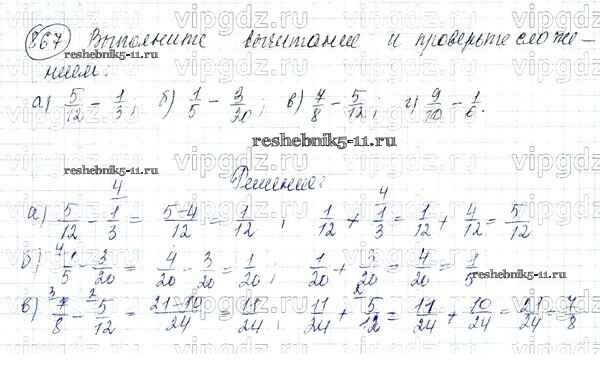 867 Выполните вычитание и проверьте сложе-
нием:
а) 5/12 - 1/3; б) 1/5 - 3/20; в) 7/8 - 5/12; г) 9/10 - 1/6.
Решение:
а) 5/12 - 1/3 = (5-4)/12 = 1/12; 1/12 + 1/3 = 1/12 + 4/12 = 5/12
б) 1/5 - 3/20 = 4/20 - 3/20 = 1/20; 1/20 + 3/20 = 4/20 = 1/5
в) 7/8 - 5/12 = (21-10)/24 = 11/24; 11/24 + 5/12 = 11/24 + 10/24 = 21/24 = 7/8
vipgdz.ru
reshebnik5-11.ru